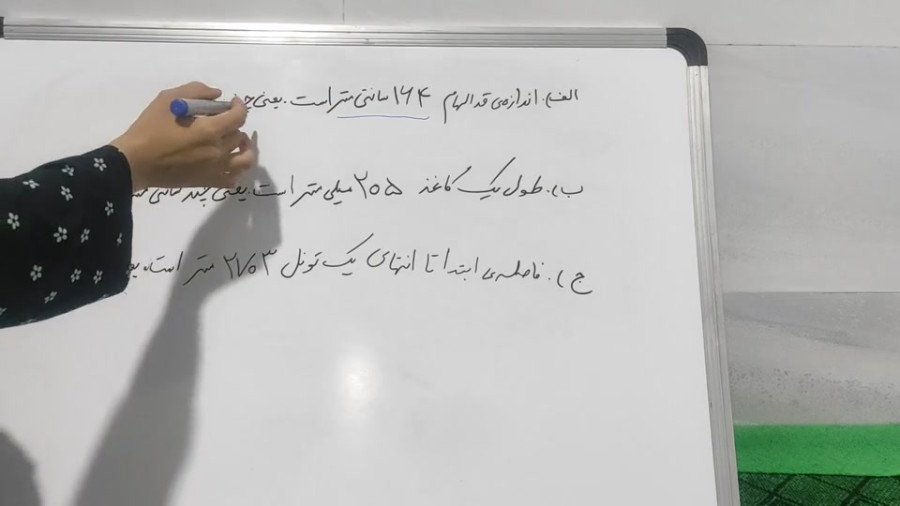 الف). اندازه‌ی قد الهام ۱۶۴ سانتی متر است. یعنی
ب). طول یک کاغذ ۲۰۵ میلی متر است. یعنی چند سانتی
ج). فاصله‌ی ابتدا تا انتهای یک تونل ۲۷۰۳ متر است.